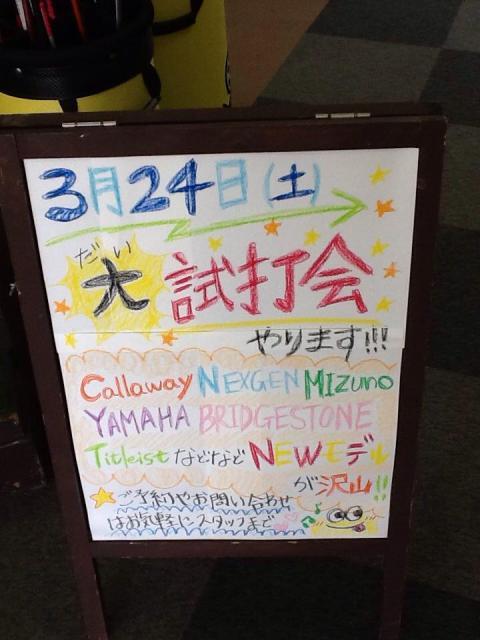 3月24日(土)
だい
大試打会
やります!!!
Callaway NEXGEN MIZUNO
YAMAHA BRIDGESTONE
Titleist などなど NEWモデル
が沢山!!
ご予約やお問い合わせ
はお気軽にスタッフまで